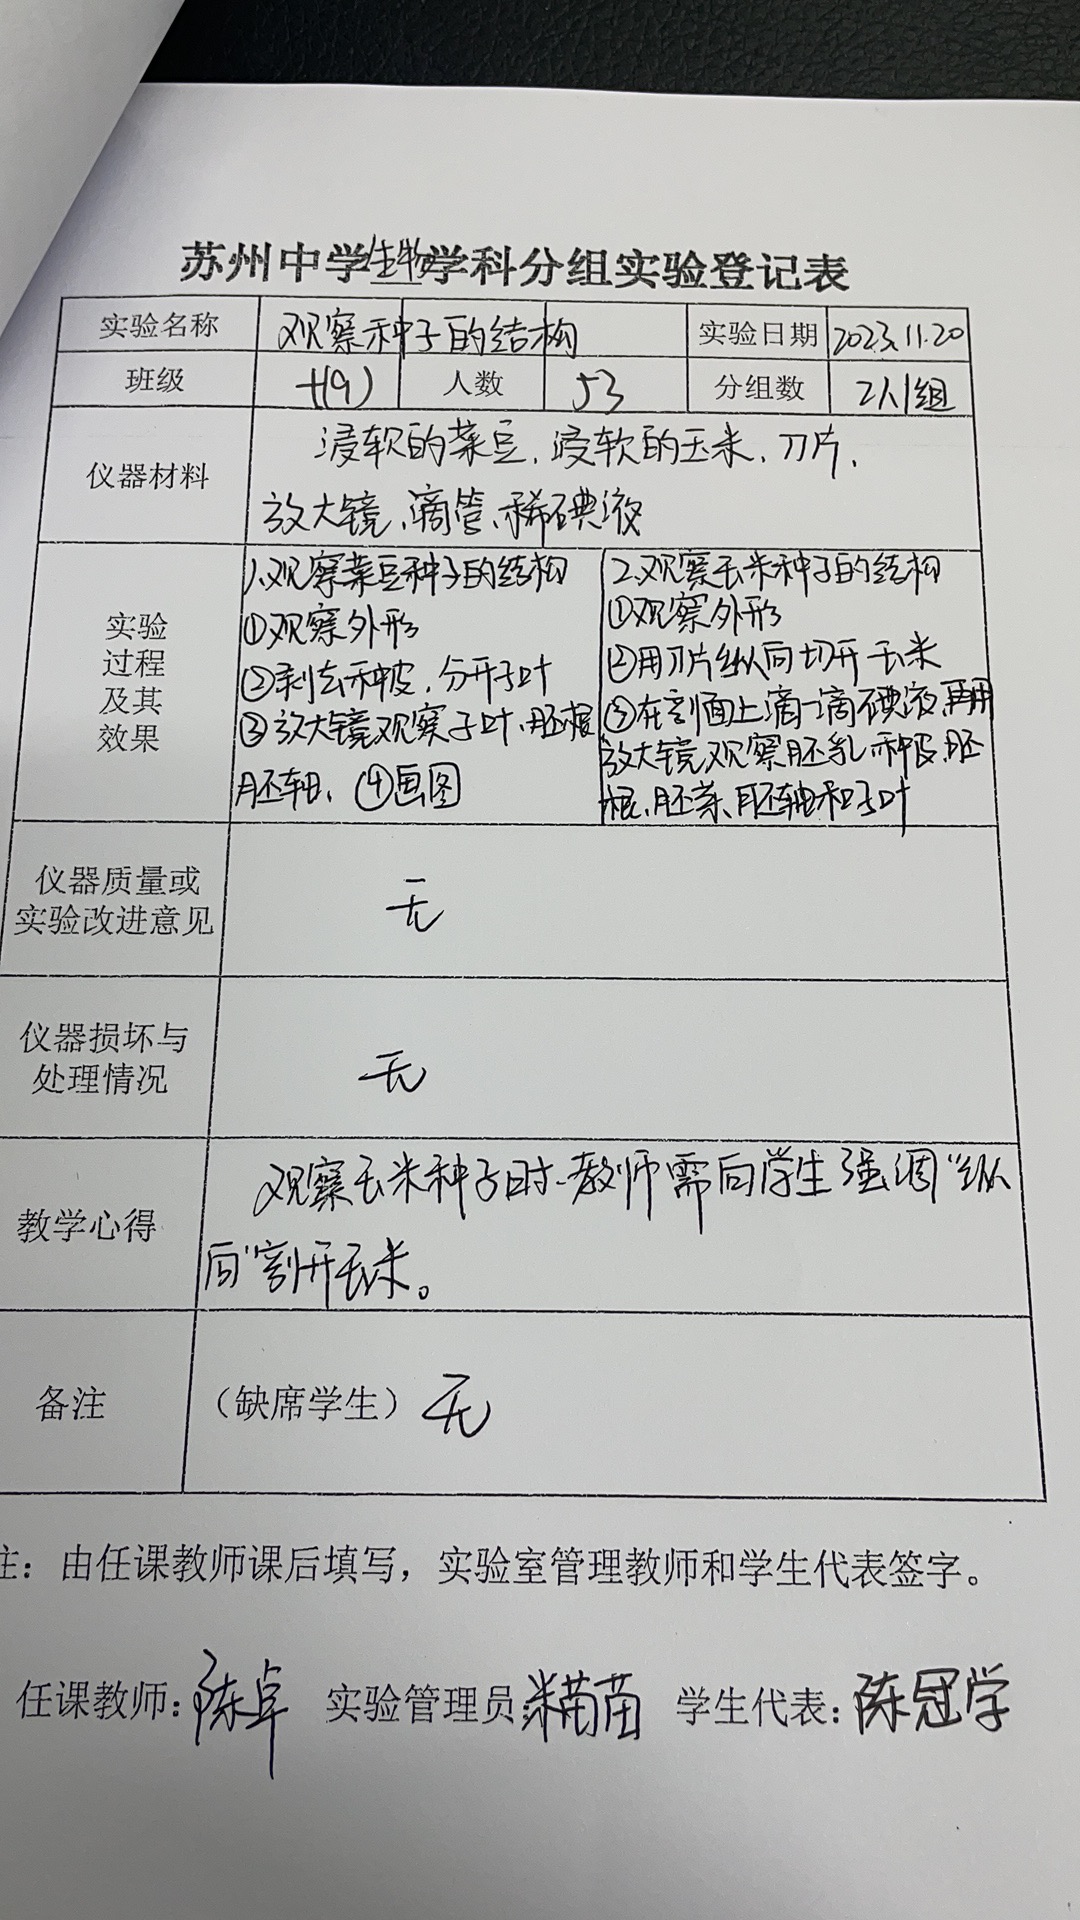 苏州中学生物学科分组实验登记表
实验名称 观察种子的结构 实验日期 2023.11.20
班级 七(9) 人数 53 分组数 2人1组
仪器材料
浸软的菜豆、浸软的玉米、刀片、
放大镜、滴管、稀碘液
实验
过程
及其
效果
1.观察菜豆种子的结构
①观察外形
②剥去种皮,分开子叶
③放大镜观察子叶、胚根
胚轴、④画图
2.观察玉米种子的结构
①观察外形
②用刀片纵向切开玉米
③在剖面上滴一滴碘液,再用
放大镜观察胚乳、种皮、胚
根、胚芽、胚轴和子叶
仪器质量或
实验改进意见
无
仪器损坏与
处理情况
无
教学心得
观察玉米种子时、教师需向学生强调“纵
向”割开玉米。
备注 (缺席学生) 无
注:由任课教师课后填写,实验室管理教师和学生代表签字。
任课教师:陈卓 实验管理员: 苗苗 学生代表:陈冠学